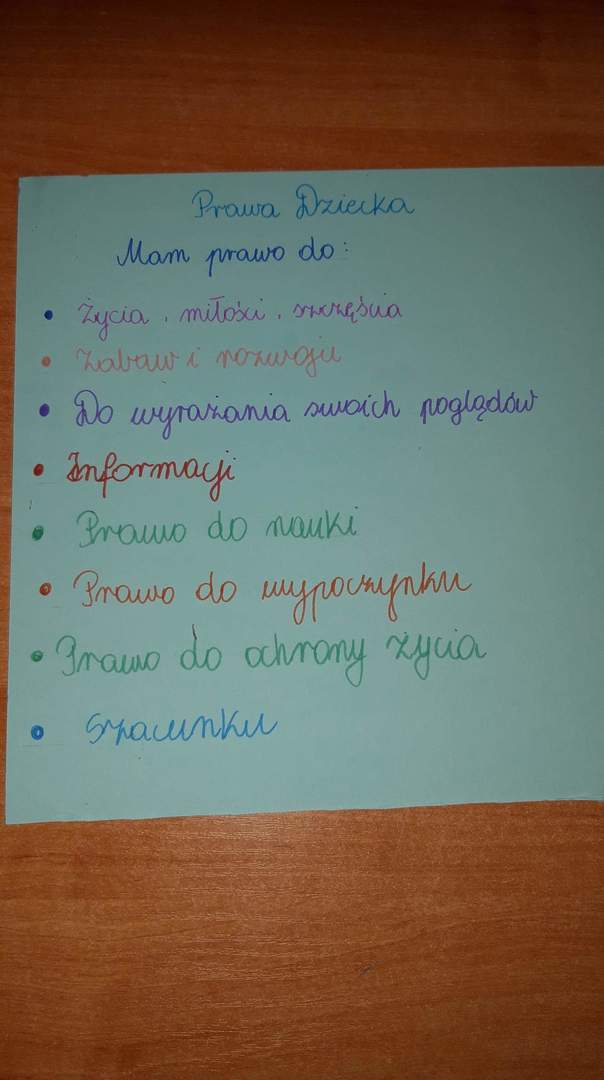 Prawa Dziecka
Mam prawo do:
• Życia, miłości, szczęścia
• Zabaw i rozwoju
• Do wyrażania swoich poglądów
• Informacji
• Prawo do nauki
• Prawo do wypoczynku
• Prawo do ochrony życia
• Szacunku